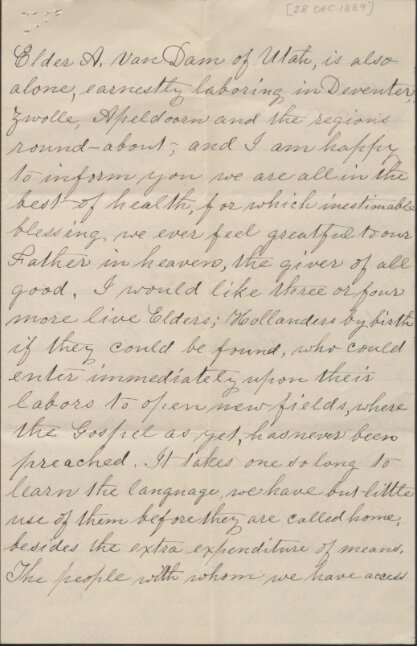 [28 DEC 1889]
Elder A. Van Dam of Utah, is also
alone, earnestly laboring in Deventer,
Zwolle, Apeldoorn and the regions
round-about, and I am happy
to inform you we are all in the
best of health, for which inestimable
blessing we ever feel greatful to our
Father in heaven, the giver of all
good. I would like three or four
more live Elders; Hollanders by birth
if they could be found, who could
enter immediately upon their
labors to open new fields, where
the Gospel as yet, has never been
preached. It takes one so long to
learn the language, we have but little
use of them before they are called home,
besides the extra expenditure of means.
The people with whom we have access